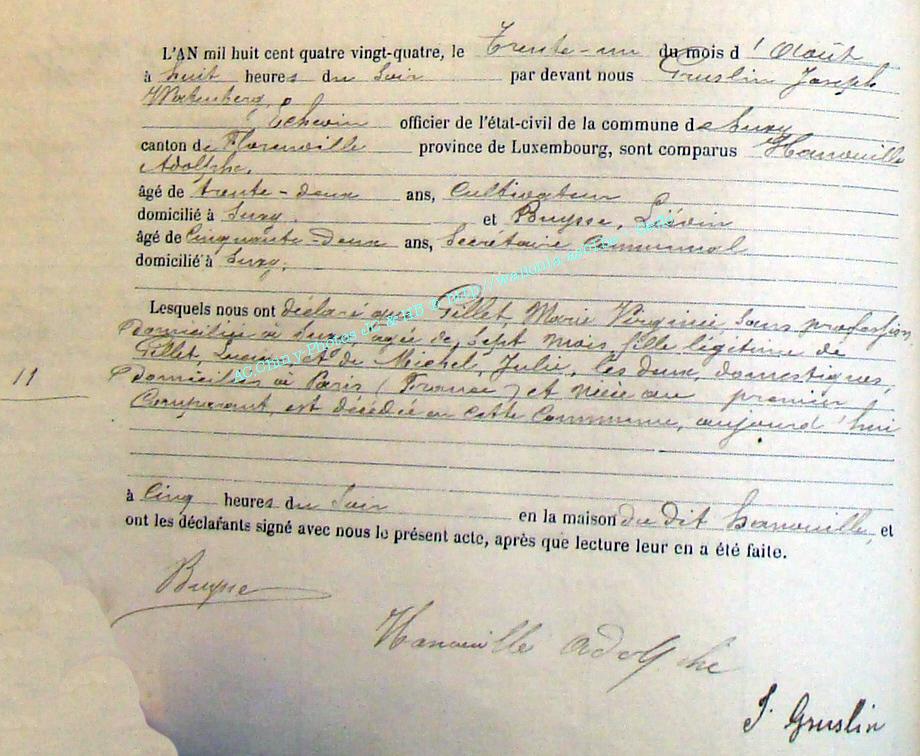 L'AN mil huit cent quatre vingt-quatre, le Trente-un du mois d'Août
à huit heures du Soir par devant nous Gruslin Joseph
Echevin officier de l'état-civil de la commune de Suxy
canton de Florenville province de Luxembourg, sont comparus Hanouille
Adolphe,
âgé de trente-deux ans, Cultivateur
domicilié à Suxy, et Buysse, Liévin
âgé de Cinquante-Deux ans, Secrétaire Communal
domicilié à Suxy,
Lesquels nous ont déclaré que Gillet, Marie Virginie, Sans profession,
Domiciliée à Suxy, agée de Sept mois, fille légitime de
Gillet, et de Michel, Julie, les deux, domestiques,
11
Domiciliés à Paris (France) et nièce au premier
Comparant, est décédée en cette Commune, aujourd'hui
à Cinq heures du Soir en la maison du dit hanouille, et
ont les déclarants signé avec nous le présent acte, après que lecture leur en a été faite.
Buysse
Hanouille Adolphe
J. Gruslin